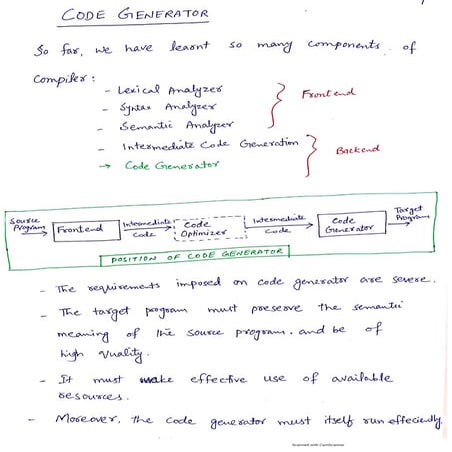 CODE GENERATOR
So far, we have learnt so many components of
compiler:
- Lexical Analyzer
- Syntax Analyzer
- Semantic Analyzer
Frontend
- Intermediate Code Generation
→ Code Generator
Backend
Source Program
Frontend
Intermediate Code
Code Optimizer
Intermediate Code
Code Generator
Target Program
POSITION OF CODE GENERATOR
- The requirements imposed on code generator are severe.
- The target program must preserve the semantic
meaning of the source program. and be of
high quality.
- It must make effective use of available
resources.
- Moreover, the code generator must itself run effeciently
Scanned with CamScanner